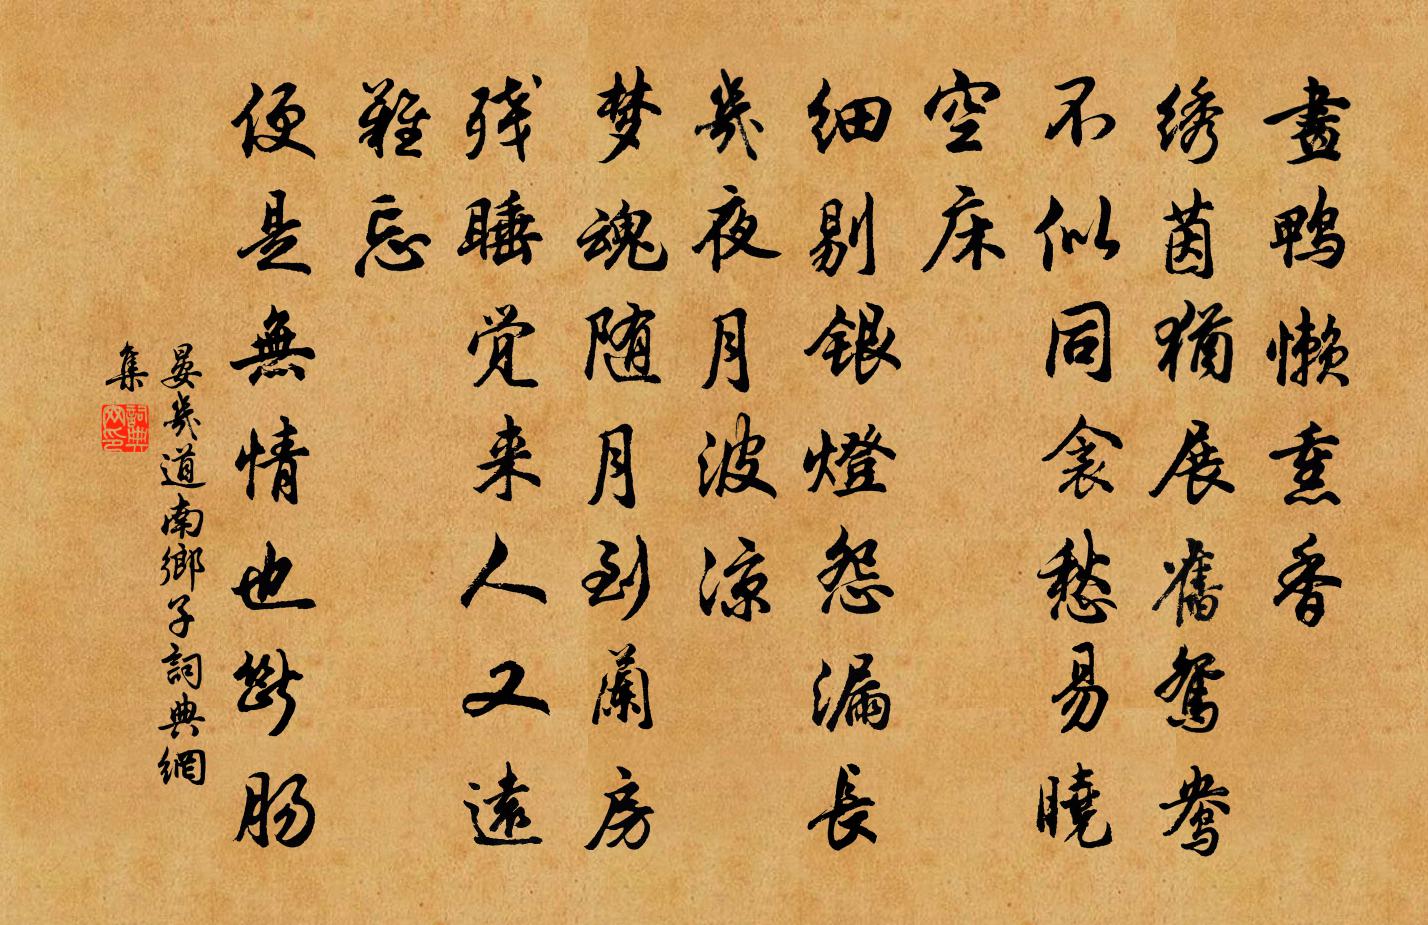 畫鴨懶熏香
綉茵猶展舊鴛鴦
不似同衾愁易曉
空床
細剔銀燈怨漏長
幾夜月波涼
梦魂随月到蘭房
残睡觉来人又遠
難忘
便是無情也斷肠
晏幾道南鄉子詞典網
集
詞典網印